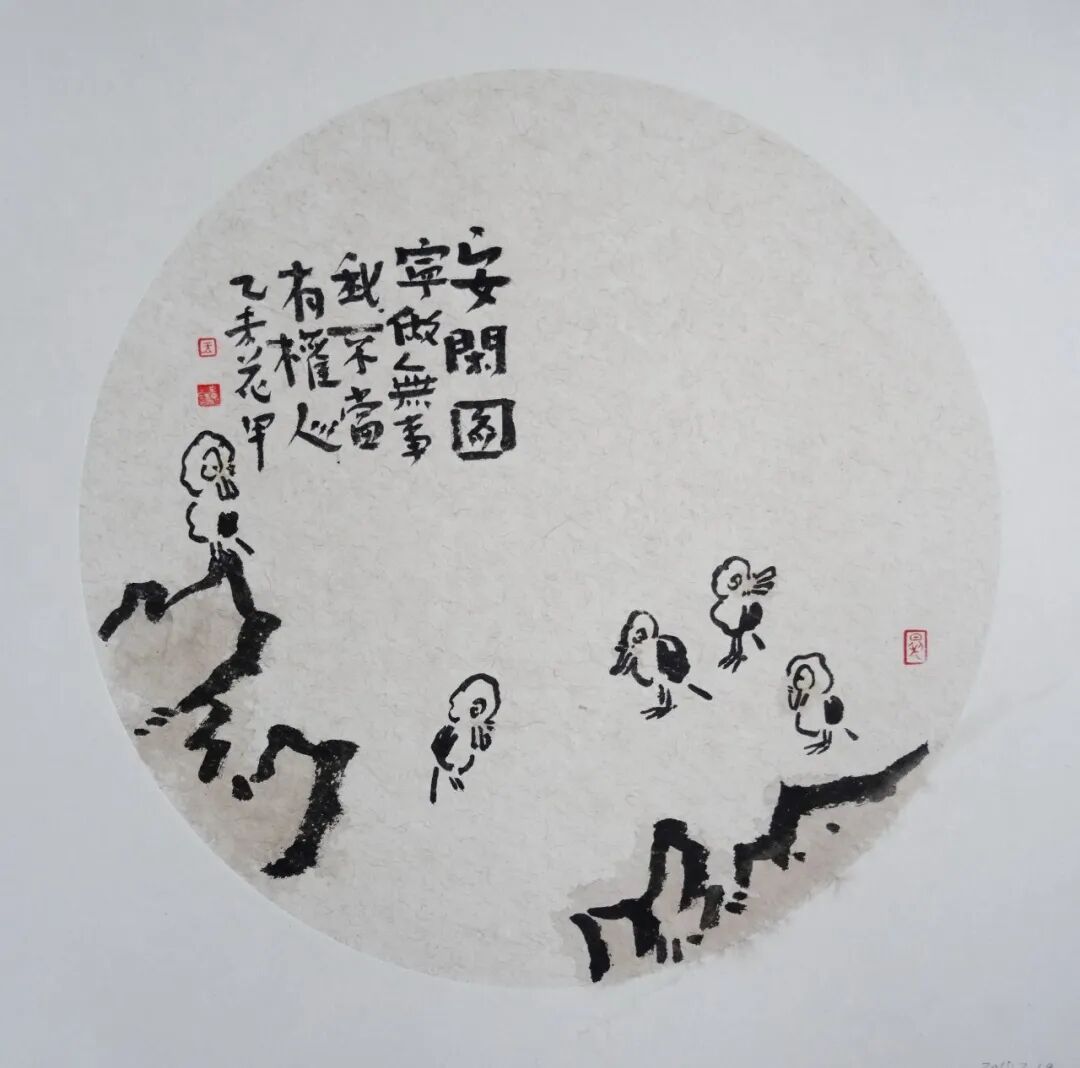 安閑图
寧做無事
我不當
有權人
乙未花甲